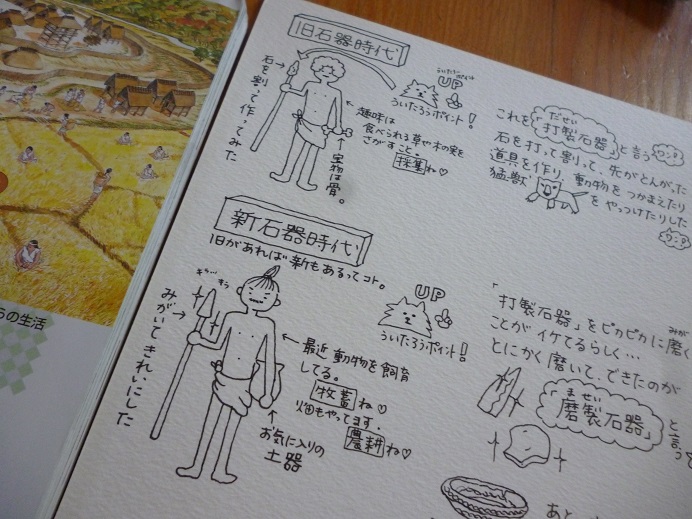 旧石器時代
石を割って作ってみた
趣味は
食べられる草や木の実を
さがすこと。
採集ね♡
宝物は骨。
UP
ういたろうポイント!
これを「打製石器」と言う
だせい
ワニ?
石を打って割って、先がとんがった
道具を作り、動物をつかまえたり
猛獣をやっつけたりした
新石器時代
旧があれば新もあるってコト。
みがいてきれいにした
最近動物を飼育
してる。
牧畜ね♡
畑もやってます。
農耕ね♡
お気に入りの
土器
UP
ういたろうポイント!
「打製石器」をピカピカに磨く
みが
ことがイケてるらしく…
とにかく磨いて、できたのが
ませい
「磨製石器」と言う
あと
の生活